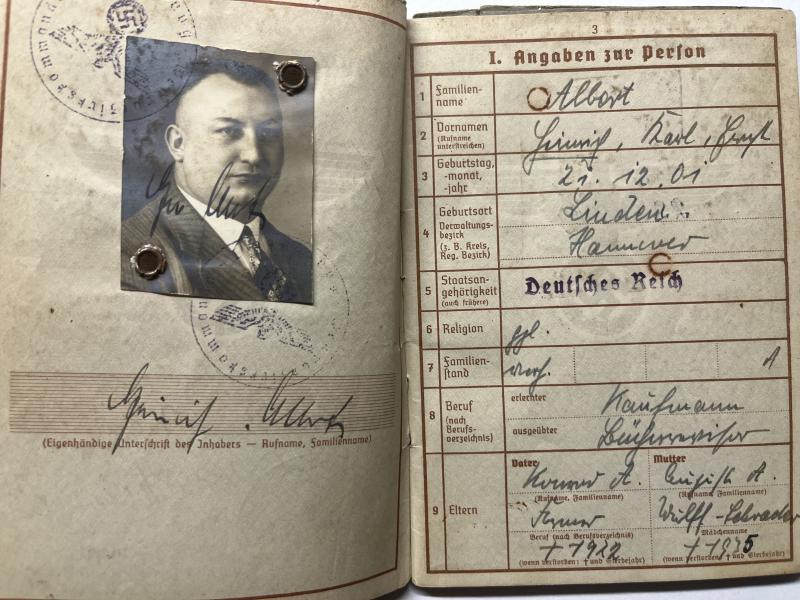 (Eigenhändige Unterschrift des Inhabers — Rufname, Familienname)
3
I. Angaben zur Person
1 Familien-
name
Albort
2 Vornamen
(Rufname
unterstreichen)
Karl,
3 Geburtstag,
-monat,
-jahr
21. 12. 01
4 Geburtsort
Verwaltungs-
bezirk
(z. B. Kreis,
Reg. Bezirk)
Linden
Hannover
5 Staatsan-
gehörigkeit
(auch frühere)
Deutsches Reich
6 Religion
7 Familien-
stand
8 Beruf
(nach
Berufs-
verzeichnis)
erlernter
Kaufmann
ausgeübter
Bücherrevisor
9 Eltern
Vater
Konrad A.
(Rufname, Familienname)
Beruf (nach Berufsverzeichnis)
† 1922
(wenn verstorben: † und Sterbejahr)
Mutter
A.
(Rufname, Familienname)
Wulff-Schrader
Mädchenname
(wenn verstorben † und Sterbejahr)